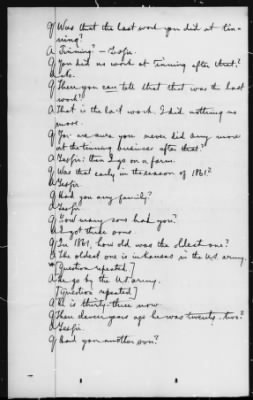 Q Was that the last work you did at tin-
ning?
A Tinning? — Yessir.
Q You did no work at tinning after that?
A No.
Q Then you can tell that that was the last
work?
A That is the last work. I did nothing no
more.
Q You are sure you never did any more
at the tinning business after that?
A Yessir: then I go on a farm.
Q Was that early in the season of 1861?
A Yessir
Q Had you any family?
A Yessir
Q How many sons had you?
A I got three sons.
Q In 1861, how old was the oldest one?
A The oldest one is in Kansas in the U.S. army.
[Question repeated]
A He go by the U.S. army.
[Question repeated]
A He is thirty-three now
Q Then eleven years ago he was twenty-two?
A Yessir.
Q Had you another son?